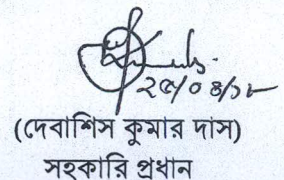 ২৫/০৪/১৮
(দেবাশিস কুমার দাস)
সহকারি প্রধান